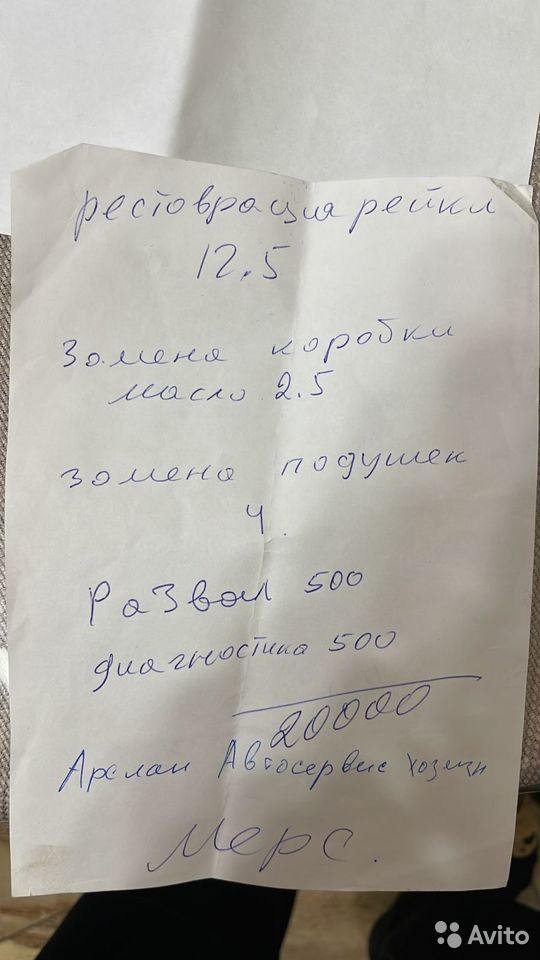 рестоврация рейкл
12.5
Замена коробки
масло 2.5
замена подушек
4.
РаЗвал 500
диагностика 500
20000
Арслан Автосервис хозяин
Мерс.
Avito